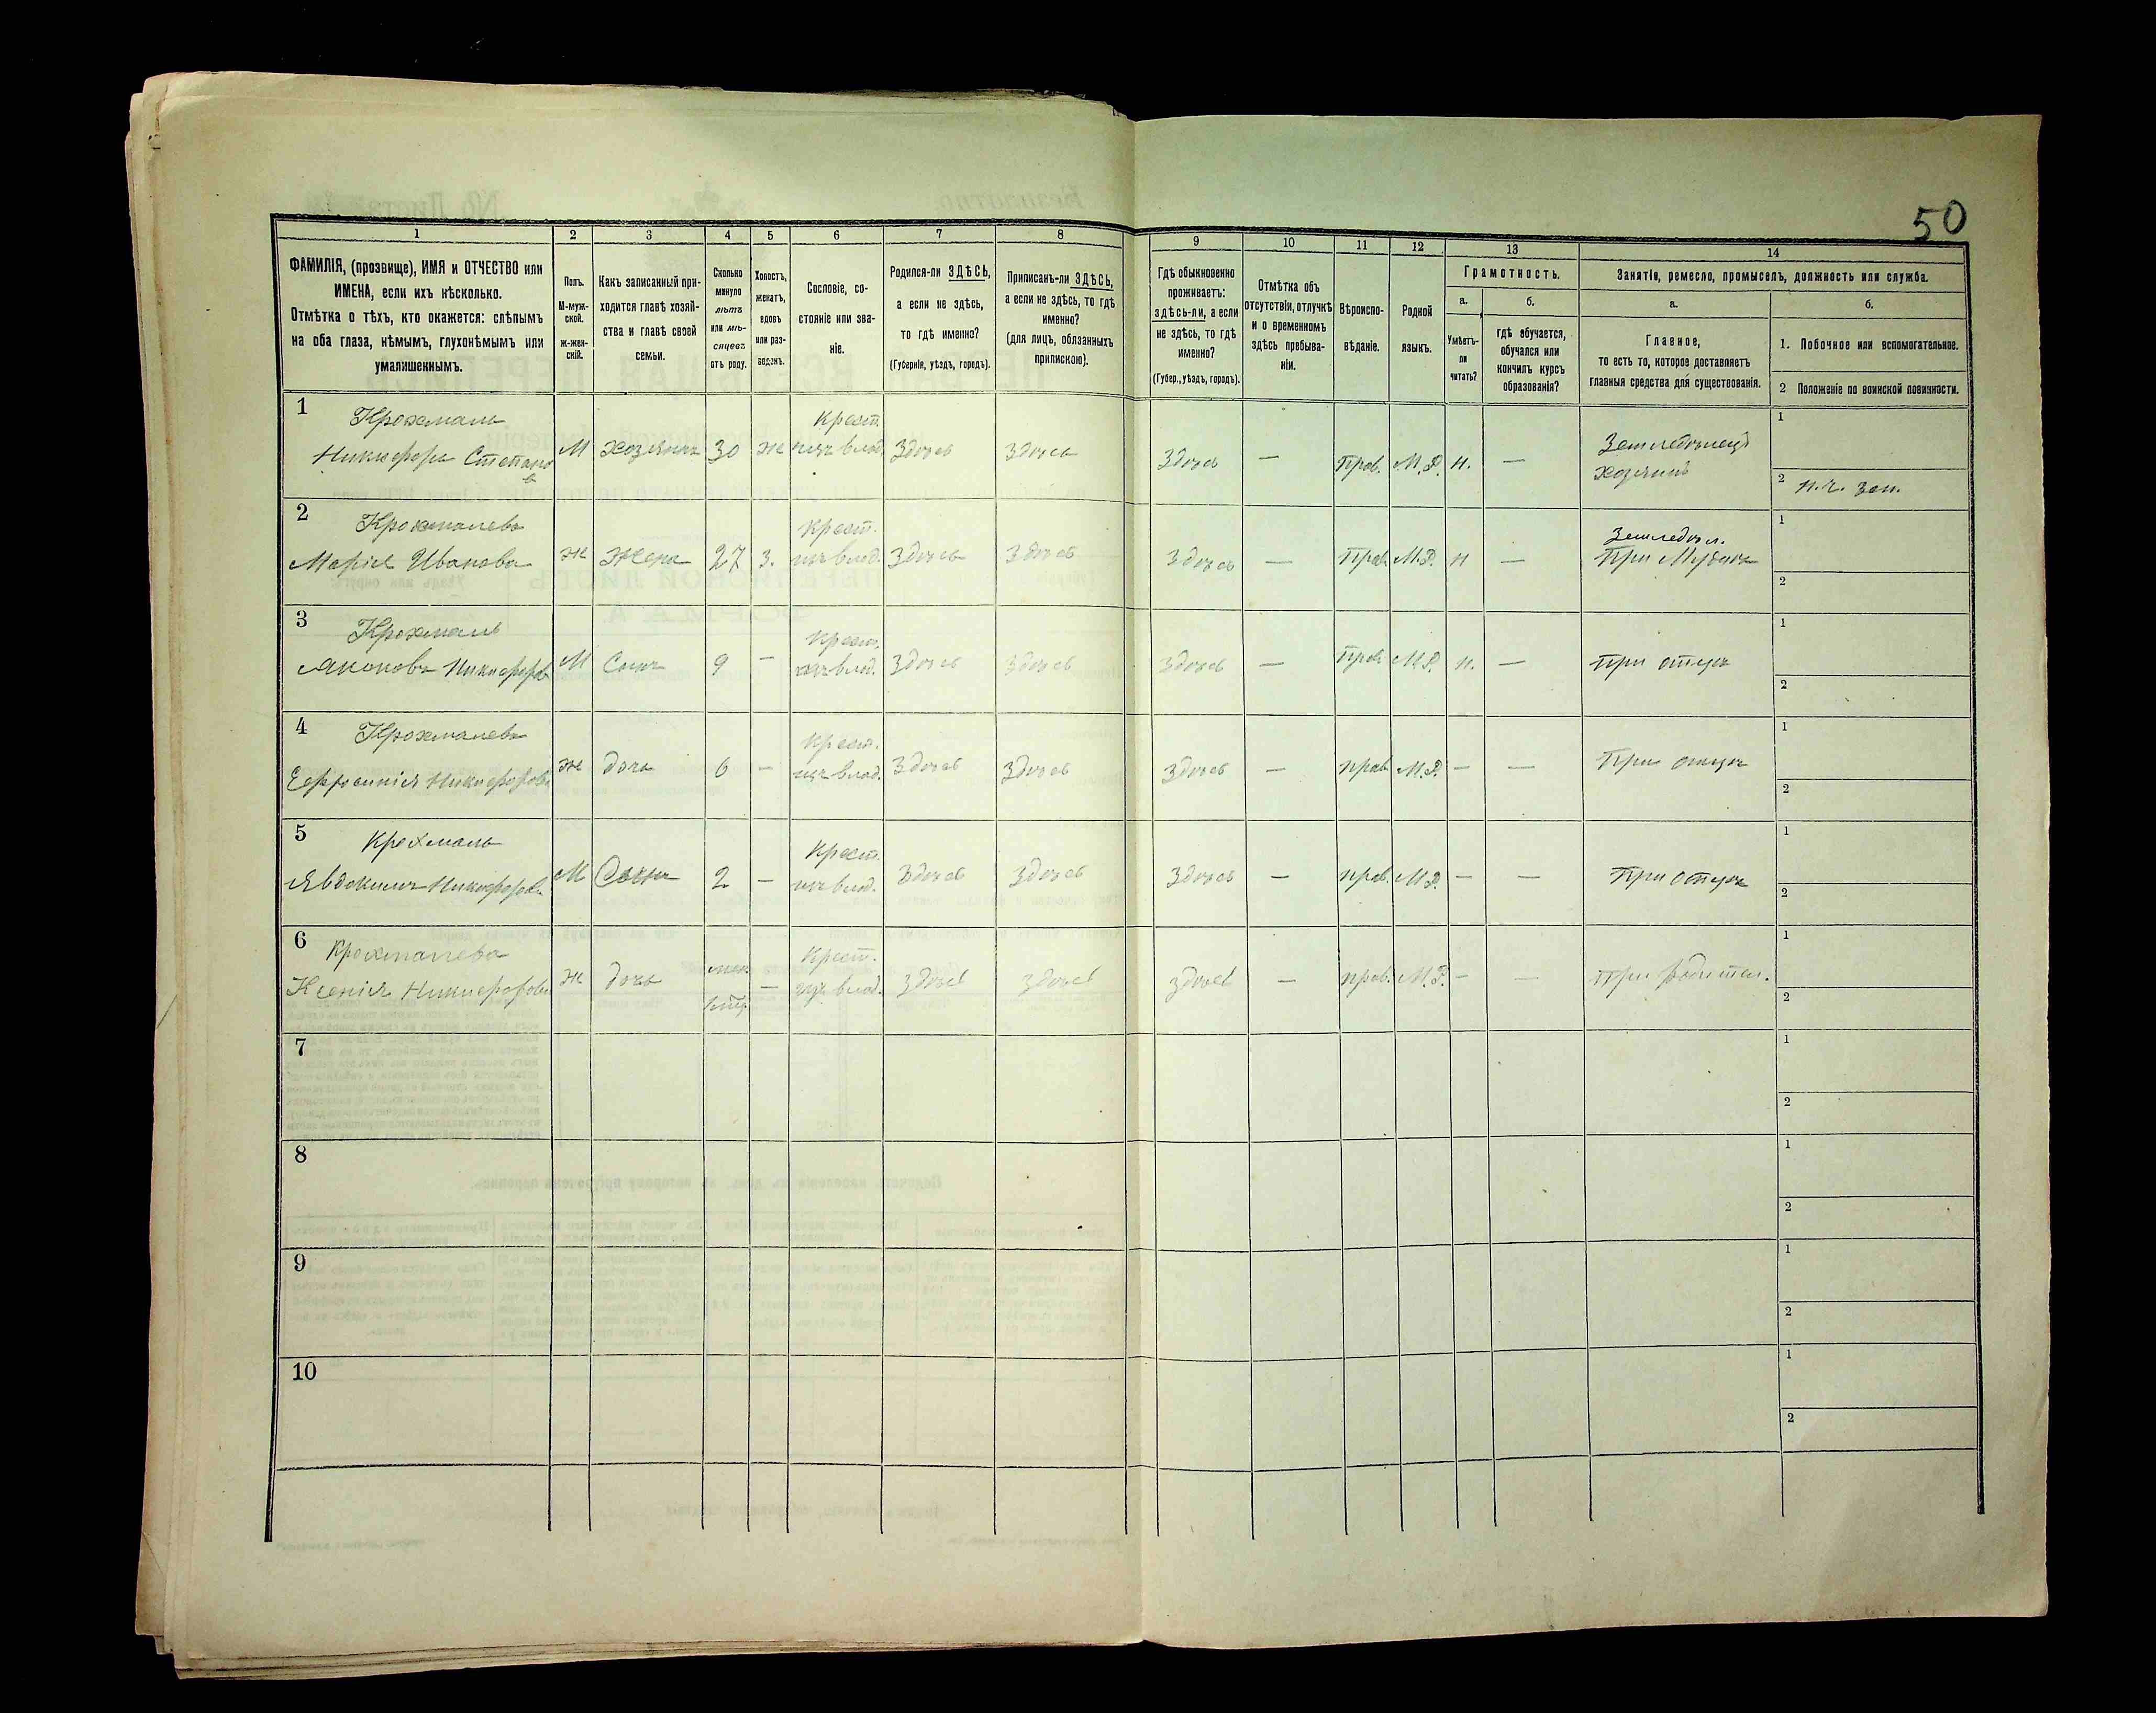 50
1 2 3 4 5 6 7 8 9 10 11 12 13 14
ФАМИЛІЯ, (прозвище), ИМЯ и ОТЧЕСТВО или
ИМЕНА, если ихъ нѣсколько.
Отмѣтка о тѣхъ, кто окажется: слѣпымъ
на оба глаза, нѣмымъ, глухонѣмымъ или
умалишеннымъ.
Полъ.
М-муж-
ской.
ж-жен-
скій.
Какъ записанный при-
ходится главѣ хозяй-
ства и главѣ своей
семьи.
Сколько
минуло
лѣтъ
или мѣ-
сяцевъ
отъ роду.
Холостъ,
женатъ,
вдовъ
или раз-
веденъ.
Сословіе, со-
стояніе или зва-
ніе.
Родился-ли ЗДѢСЬ,
а если не здѣсь,
то гдѣ именно?
(Губернія, уѣздъ, городъ).
Приписанъ-ли ЗДѢСЬ,
а если не здѣсь, то гдѣ
именно?
(для лицъ, обязанныхъ
припискою).
Гдѣ обыкновенно
проживаетъ:
здѣсь-ли, а если
не здѣсь, то гдѣ
именно?
(Губер., уѣздъ, городъ).
Отмѣтка объ
отсутствіи, отлучкѣ
и о временномъ
здѣсь пребыва-
ніи.
Вѣроиспо-
вѣданіе.
Родной
языкъ.
Грамотность.
а.
Умѣетъ-
ли
читать?
б.
гдѣ обучается,
обучался или
кончилъ курсъ
образованія?
Занятіе, ремесло, промыселъ, должность или служба.
а.
Главное,
то есть то, которое доставляетъ
главныя средства для существованія.
б.
1. Побочное или вспомогательное.
2 Положеніе по воинской повинности.
1 Крохмаль Крест. Земледѣлецъ 1
Никифоръ Степано в М хозяинъ 30 ж влад. Здѣсь Здѣсь Здѣсь — Прав. М.Р. н. — хозяинъ 2
2 Крохмалева Крест. Земледѣл. 1
Марія Иванова ж жена 27 з. влад. Здѣсь Здѣсь Здѣсь — Прав. М.Р. н — При 2
3 Крохмаль Крест. 1
Никифоров М Сынъ 9 — влад. Здѣсь Здѣсь Здѣсь — Прав. М.Р. н. — при отцѣ 2
4 Крохмалева Крест. 1
Ефросинія Никифорова ж дочь 6 — влад. Здѣсь Здѣсь Здѣсь — прав. М.Р. — — При отцѣ 2
5 Крохмаль Крест. 1
Явдокимъ Никифоровъ М Сынъ 2 — влад. Здѣсь Здѣсь Здѣсь — прав. М.Р. — — При отцѣ 2
6 Крохмалева Крест. 1
Ксенія Никифорова ж дочь — влад. Здѣсь Здѣсь Здѣсь — прав. М.Р. — — при родител. 2
7 1
2
8 1
2
9 1
2
10 1
2